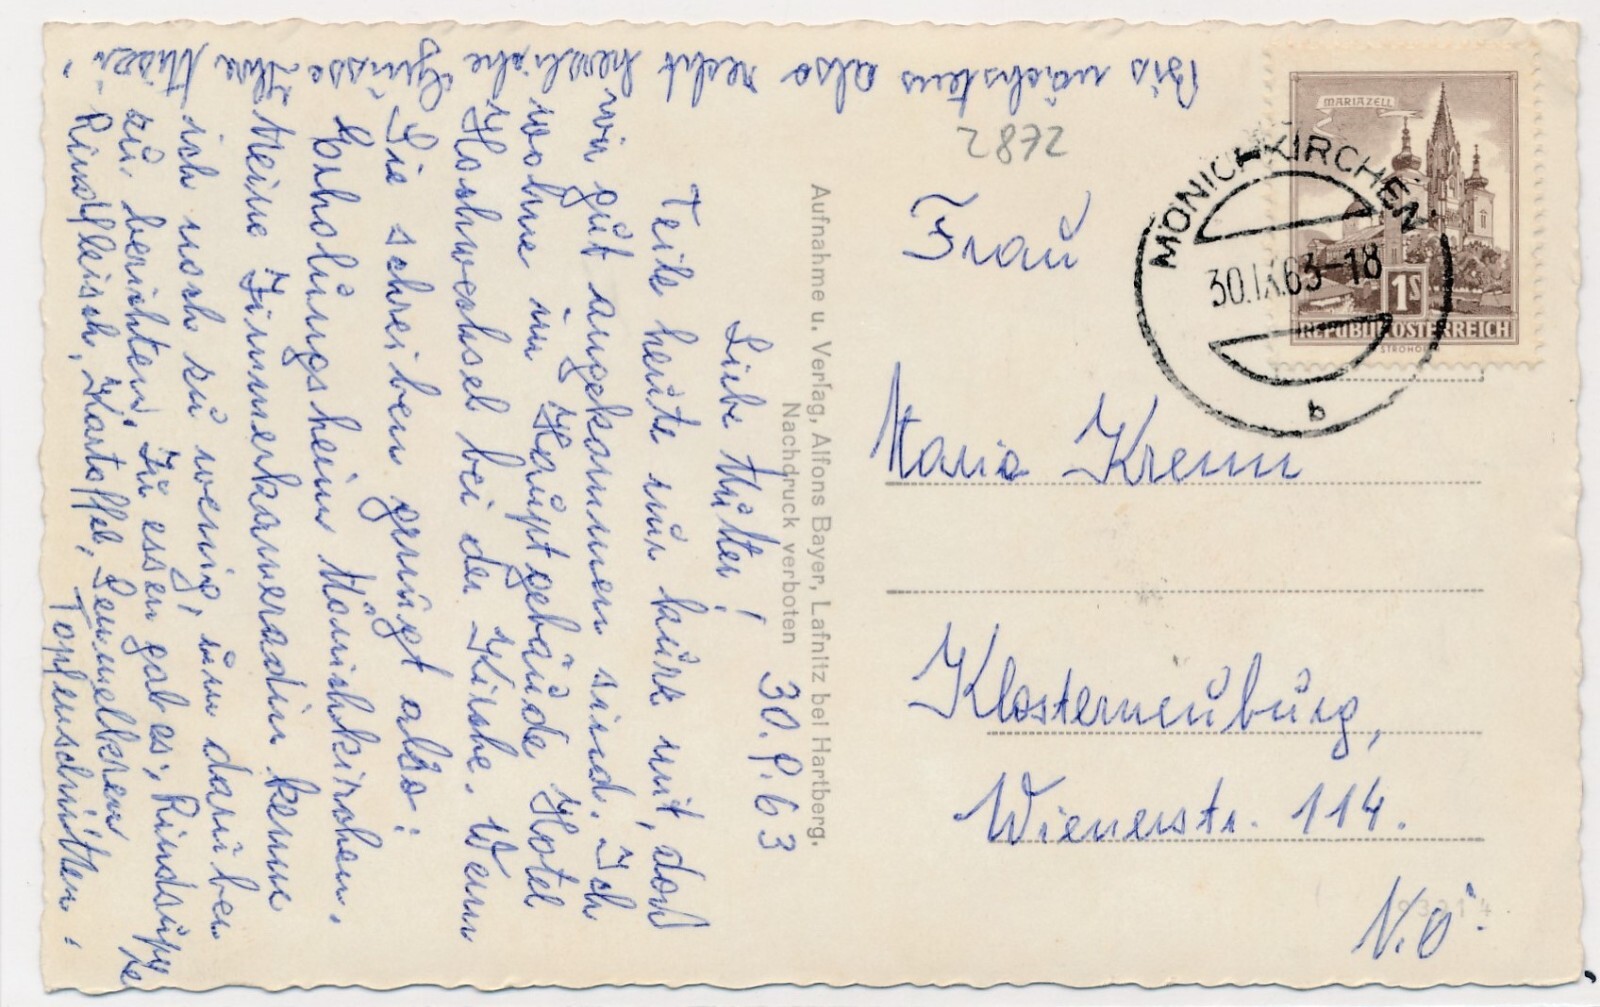 30.9.63
Liebe Mutter!
Teile heute nur kurz mit, daß
wir gut angekommen sind. Ich
wohne im Hauptgebäude Hotel
Hochwechsel bei der Kirche. Wenn
Sie schreiben genügt also:
Erholungsheim Mönichkirchen.
Meine Zimmerkameradin kenne
ich noch zu wenig, um darüber
zu berichten. Zu essen gab es: Rindsuppe
Rindfleisch, Kartoffel, Semmelkren
Topfenschnitten!
Bis nächstens also recht herzliche Grüsse Ihre
Aufnahme u. Verlag, Alfons Bayer, Lafnitz bei Hartberg.
Nachdruck verboten
2872
Frau
Maria Krenn
Klosterneuburg,
Wienerstr. 114.
N.Ö.
MARIAZELL
1S
REPUBLIK ÖSTERREICH
MÖNICHKIRCHEN
30.IX.63-18
a